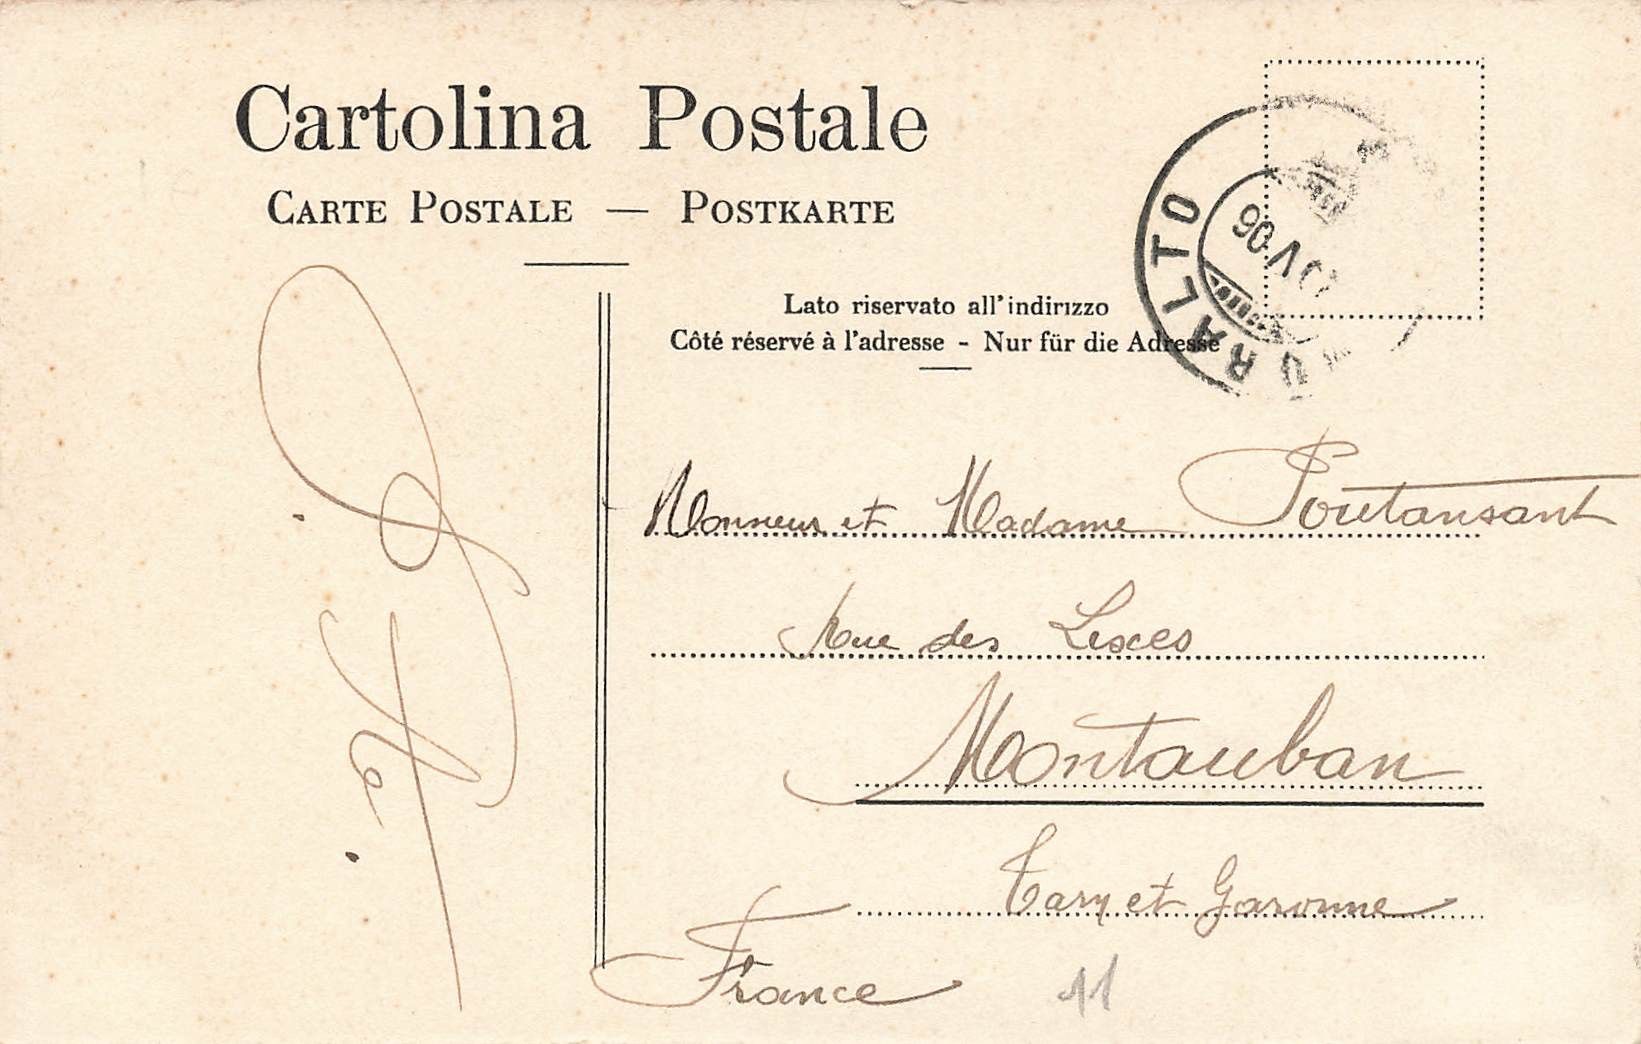 Cartolina Postale
CARTE POSTALE — POSTKARTE
Lato riservato all'indirizzo
Côté réservé à l'adresse - Nur für die Adresse
URALTO
V 06
Monsieur et Madame Poutansant
Rue des Lexces
Montauban
Tarn et Garonne
France
11